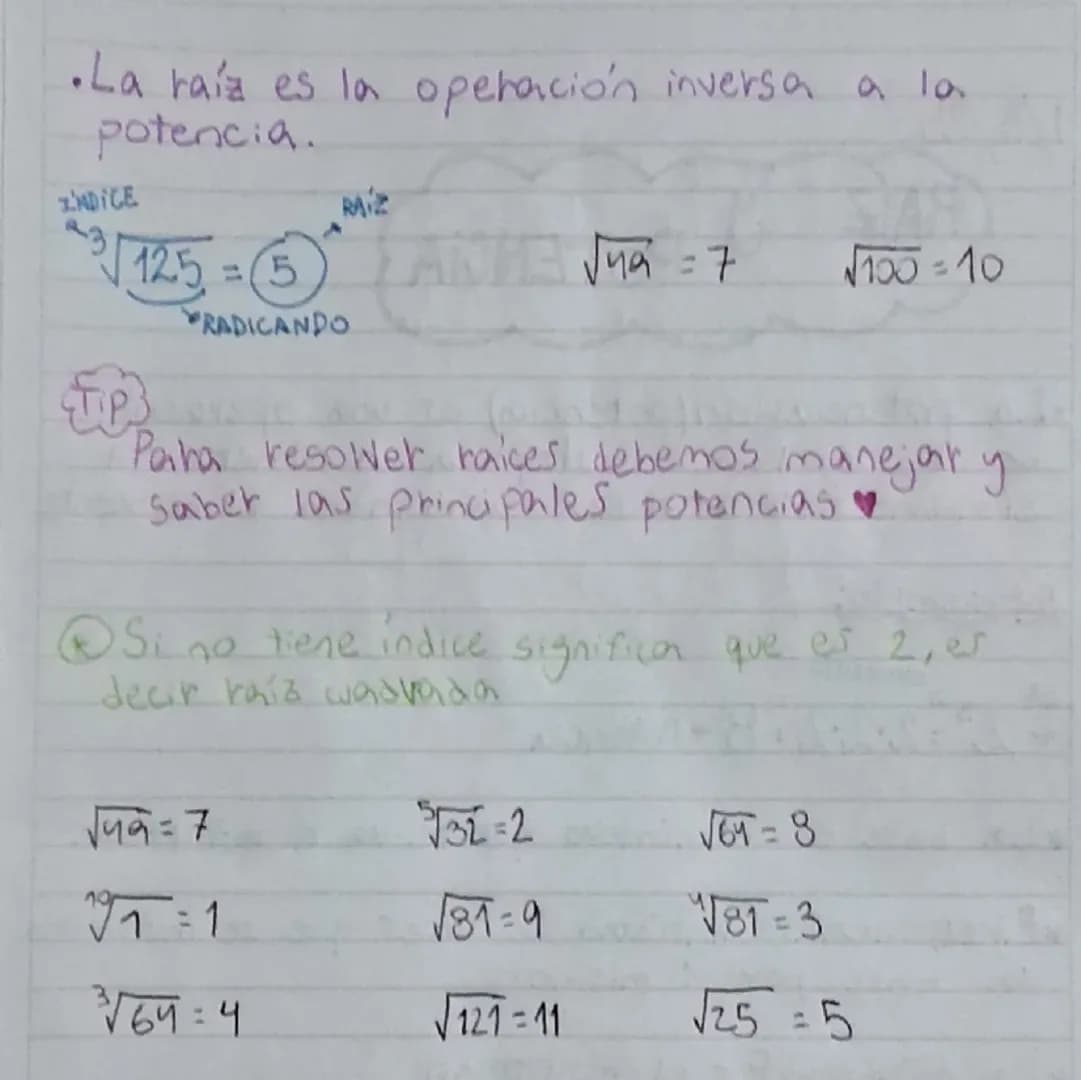 .La raíz es la operación inversa a la
potencia.
ÍNDICE
RAÍZ
³√125 = 5
√49 = 7
√100 = 10
RADICANDO
Tip
Para resolver raíces debemos manejar y
saber las principales potencias ♥
* Si no tiene índice significa que es 2, es
decir raíz cuadrada
√49 = 7 ⁵√32 = 2 √64 = 8
¹⁹√1 = 1 √81 = 9 ⁴√81 = 3
³√64 = 4 √121 = 11 √25 = 5